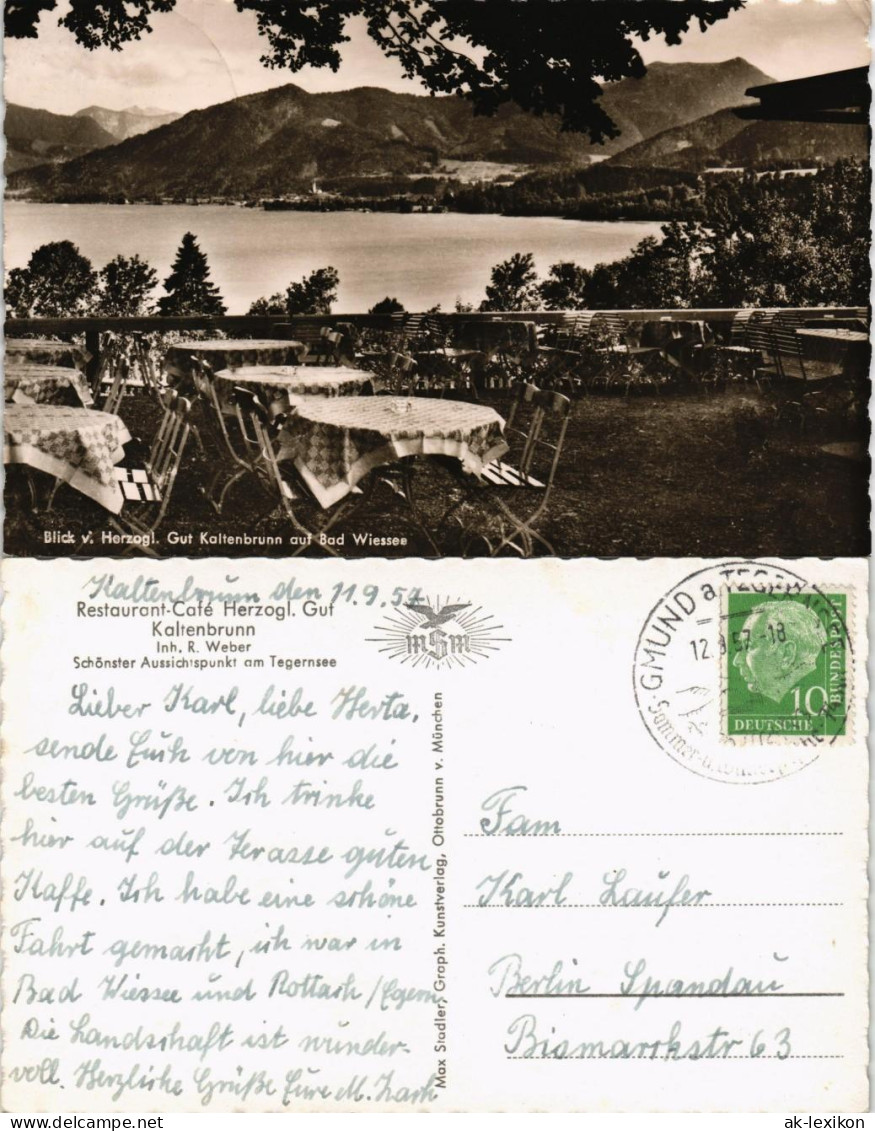 Blick v. Herzogl. Gut Kaltenbrunn auf Bad Wiessee
Kaltenbrunn den 11.9.57
Restaurant-Café Herzogl. Gut
Kaltenbrunn
Inh. R. Weber
Schönster Aussichtspunkt am Tegernsee
Lieber Karl, liebe Herta,
sende Euch von hier die
besten Grüße. Ich trinke
hier auf der Terasse guten
Kaffe. Ich habe eine schöne
Fahrt gemacht, ich war in
Bad Wiessee und Rottach/Egern
Die Landschaft ist wunder-
voll. Herzliche Grüße Eure M.
mSm
Max Stadler, Graph. Kunstverlag, Ottobrunn v. München
GMUND a. TEGERNSEE
12.9.57-18
Sommer-u.
10
DEUTSCHE
BUNDESPOST
Fam
Karl Laufer
Berlin Spandau
Bismarckstr 63
www.ak-ansichtskarten.de
ak-lexikon